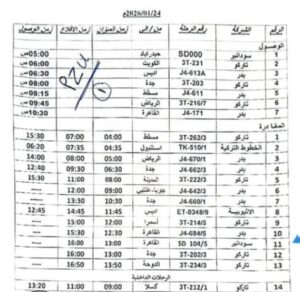 2026/01/24م
الرقم الشركة رقم الرحلة من/إلى زمن الميزان زمن الإقلاع زمن الوصول
الوصول
1 سودانير SD000 حيدراباد 05:00ص
2 تاركو 3T-231 الكويت 06:00ص
3 تاركو J4-613A اديس 06:30ص
4 تاركو 3T-203 جدة 08:00ص
5 J4-611 مسقط 08:15ص
6 تاركو 3T-216/7 الرياض 09:45ص
7 J4-171 القاهرة 10:30ص
PZU
1
المغادرة
1 تاركو 3T-262/3 مسقط 04:00 07:00 15:30
2 الخطوط التركية TK-510/1 استنبول 04:35 07:35 06:20
3 J4-670/1 الرياض 05:00 08:00 14:00
4 J4-662/3 جدة 06:30 09:30 12:40
5 تاركو 3T-222/3 المدينة 08:00 11:00 15:30
6 J4-642/3 09:00 12:00 ----
7 J4-660/1 جدة 10:30 13:30 ----
8 الاثيوبية ET-0348/9 اديس 11:45 14:45 12:45
9 تاركو 3T-214/5 اسمرا 12:00 15:00
10 J4-684/5 القاهرة 12:30 15:30
11 سودانير SD 104/5 القاهرة 12:30 15:30
12 تاركو 3T-202/3 جدة 13:00 16:00
13 تاركو 3T-234/3 الدوحة 13:50 16:50
الرحلات الداخلية
14 تاركو 3T-212/1 كسلا 09:00 11:00 13:20